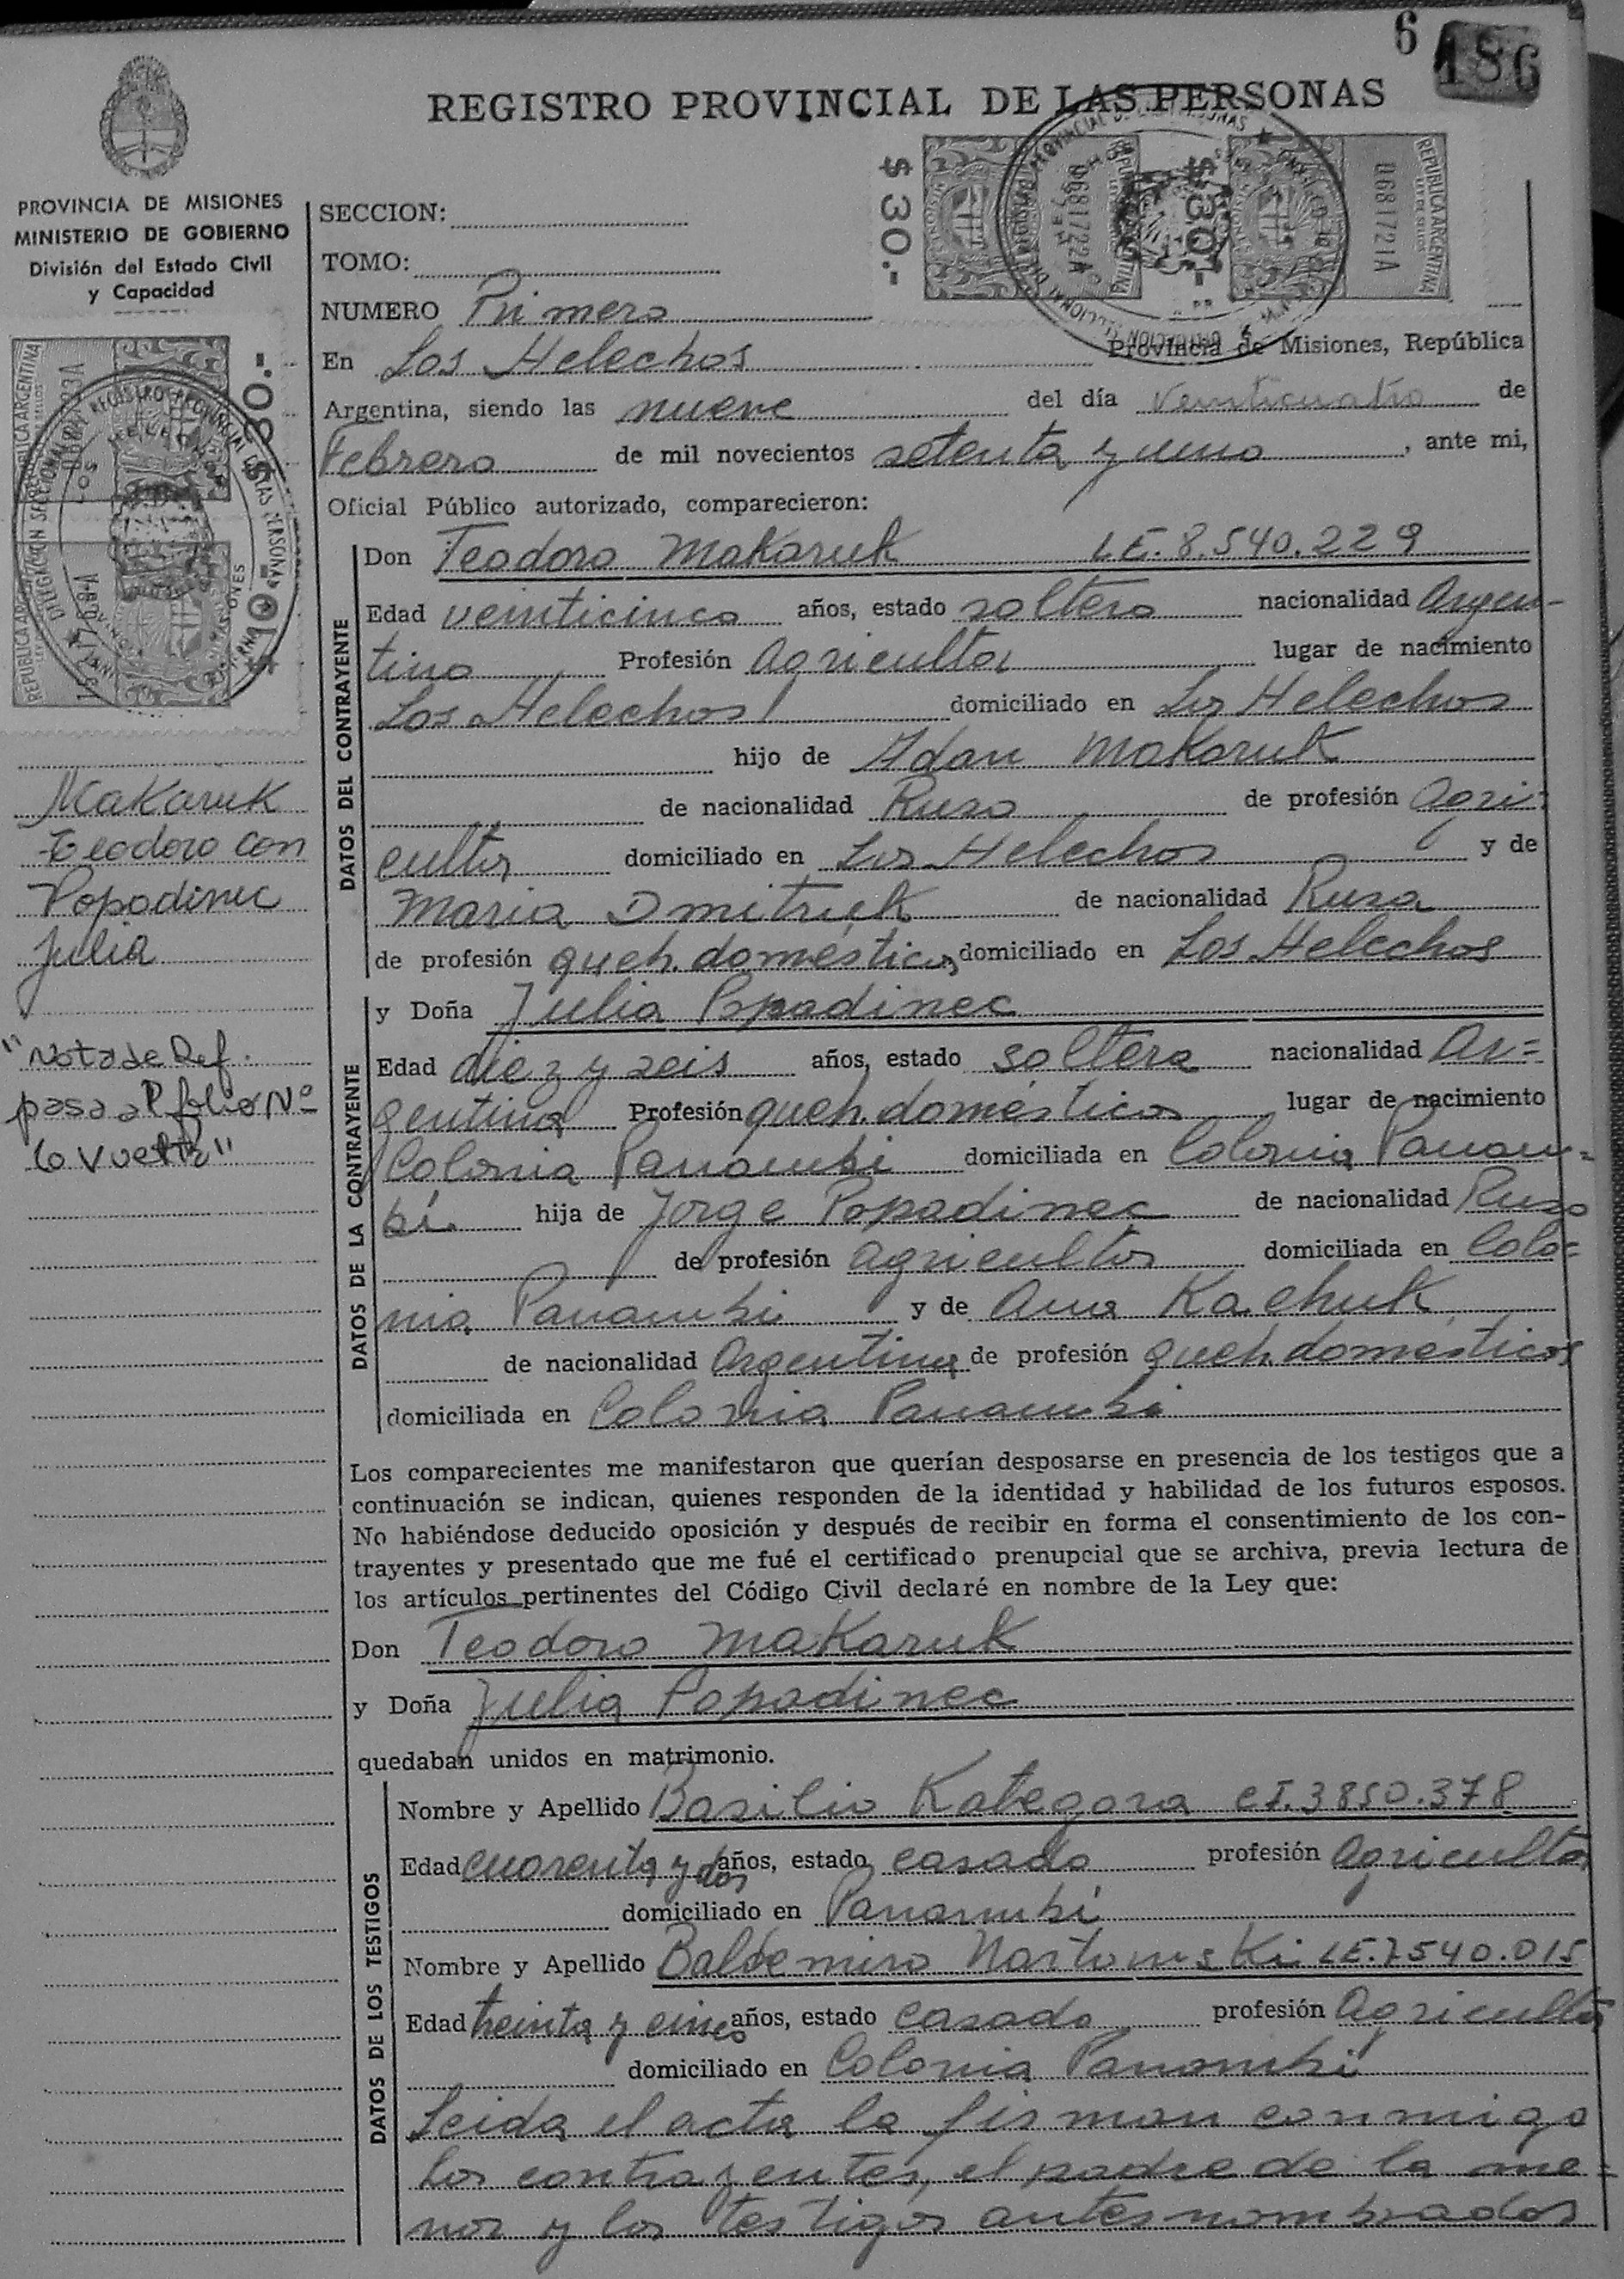 6 186
REGISTRO PROVINCIAL DE LAS PERSONAS
PROVINCIA DE MISIONES
MINISTERIO DE GOBIERNO
División del Estado Civil
y Capacidad
$ 30.- REPUBLICA ARGENTINA 0681722A
$ 30.- REPUBLICA ARGENTINA 0681721A
REPUBLICA ARGENTINA
REGISTRO PROVINCIAL DE LAS PERSONAS
Makaruk
Teodoro con
Popadinec
Julia
"Nota de Ref.
pasa al folio Nº
6 vuelta"
SECCION:
TOMO:
NUMERO Primero
En Los Helechos Provincia de Misiones, República
Argentina, siendo las nueve del día veinticuatro de
Febrero de mil novecientos setenta y uno, ante mi,
Oficial Público autorizado, comparecieron:
DATOS DEL CONTRAYENTE
Don Teodoro Makaruk LE. 8.540.229
Edad veinticinco años, estado soltero nacionalidad Argen-
tino Profesión Agricultor lugar de nacimiento
Los Helechos domiciliado en Los Helechos
hijo de Adan Makaruk
de nacionalidad Ruso de profesión Agri-
cultor domiciliado en Los Helechos y de
Maria Dmitruk de nacionalidad Rusa
de profesión queh. domésticos domiciliado en Los Helechos
DATOS DE LA CONTRAYENTE
y Doña Julia Popadinec
Edad diez y seis años, estado soltera nacionalidad Ar=
gentina Profesión queh. domésticos lugar de nacimiento
Colonia Panambi domiciliada en Colonia Panam=
bí hija de Jorge Popadinec de nacionalidad Ruso
de profesión agricultor domiciliada en Colo=
nia Panambi y de Ana Kachuk
de nacionalidad Argentina de profesión queh. domésticos
domiciliada en Colonia Panambi
Los comparecientes me manifestaron que querían desposarse en presencia de los testigos que a
continuación se indican, quienes responden de la identidad y habilidad de los futuros esposos.
No habiéndose deducido oposición y después de recibir en forma el consentimiento de los con-
trayentes y presentado que me fué el certificado prenupcial que se archiva, previa lectura de
los artículos pertinentes del Código Civil declaré en nombre de la Ley que:
Don Teodoro Makaruk
y Doña Julia Popadinec
quedaban unidos en matrimonio.
DATOS DE LOS TESTIGOS
Nombre y Apellido Basilio Kategora CI. 3850.378
Edad cuarenta y dos años, estado casado profesión Agricultor
domiciliado en Panambí
Nombre y Apellido Baldemiro LE. 7540.015
Edad treinta y cinco años, estado casado profesión Agricultor
domiciliado en Colonia Panambí
Leida el acta la firman conmigo
los contrayentes, el padre de la me=
nor y los testigos antes nombrados